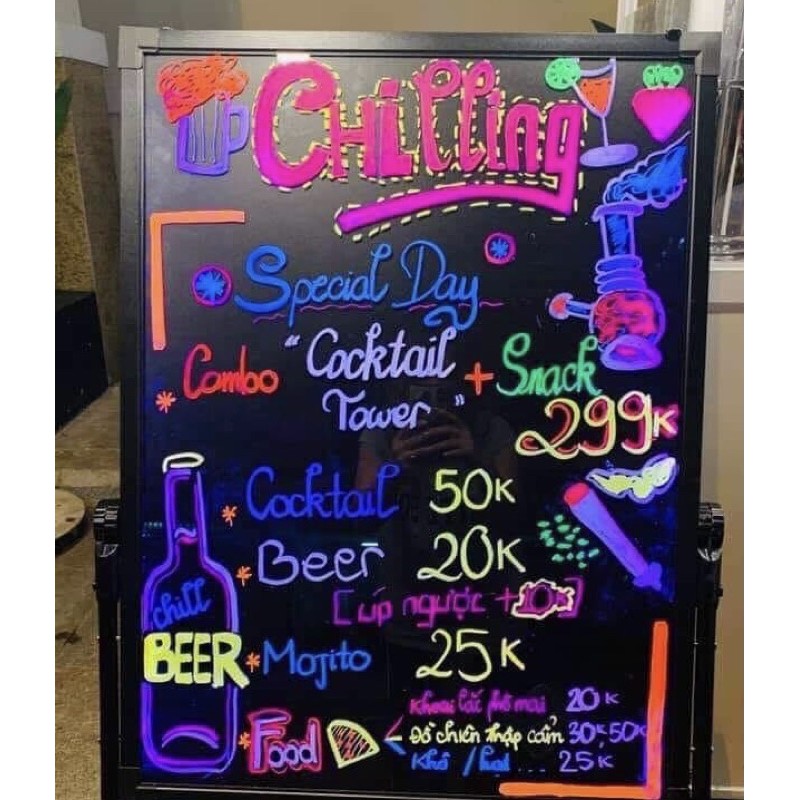 CHilling
Special Day
* Combo "Cocktail Tower" + Snack
299K
* Cocktail 50K
* Beer 20K
[úp ngược +10K]
* Mojito 25K
chill
BEER
* Food
Khoai lắc phô mai 20K
Đồ chiên thập cẩm 30K, 50K
Khô / ... 25K